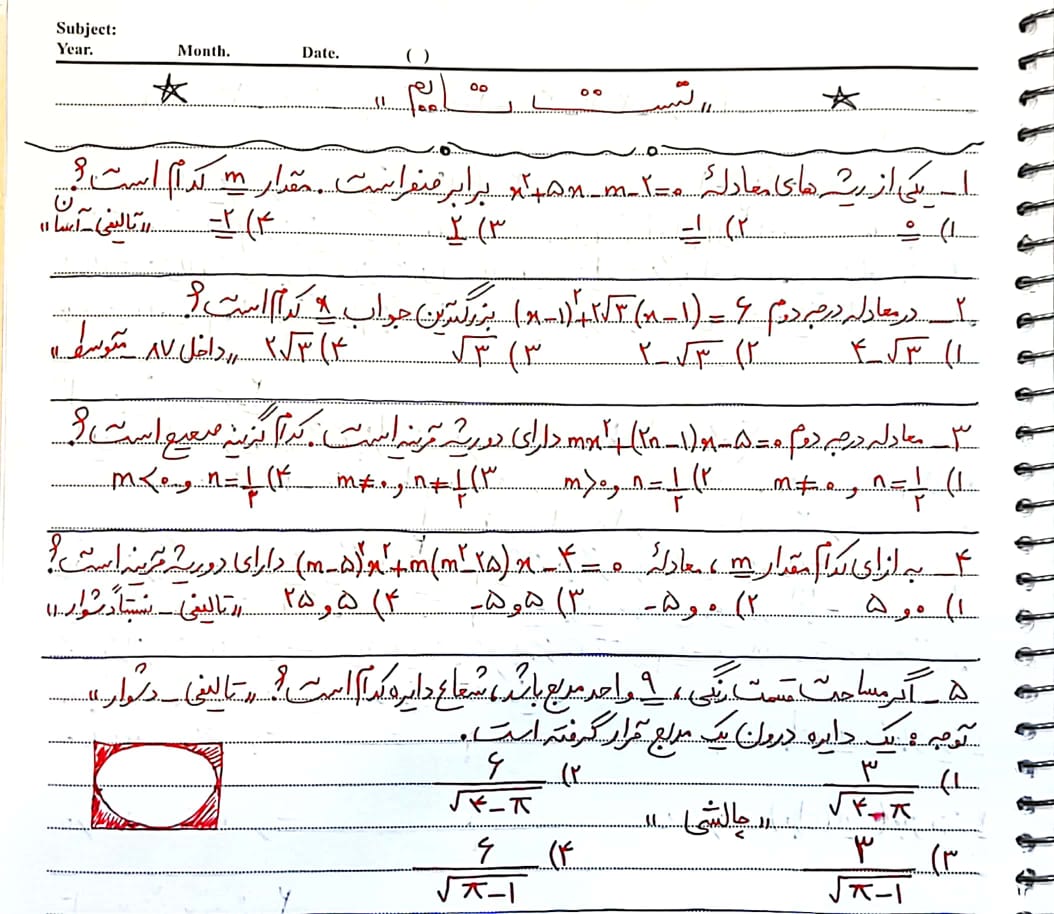 Subject:
Year. Month. Date. ( )
« تست تایم »
۱ـ یکی از ریشه های معادلهٔ x²+۵x-m-۲=۰ برابر صفر است. مقدار m کدام است؟
۱) ۰ ۲) -۱ ۳) ۲ ۴) -۲ «تالیفی-آسان»
۲ـ در معادله درجه دوم (x-۱)²+۲√۳(x-۱)=۶ بزرگترین جواب x کدام است؟
۱) ۴-√۳ ۲) ۲-√۳ ۳) √۳ ۴) ۲√۳ «داخل ۸۷ - متوسط»
۳ـ معادله درجه دوم mx²+(۲n-۱)x-۵=۰ دارای دو ریشه قرینه است. کدام گزینه صحیح است؟
۱) m≠۰ , n=۱/۲ ۲) m>۰ , n=۱/۲ ۳) m≠۰ , n≠۱/۲ ۴) m<۰ , n=۱/۲
۴ـ به ازای کدام مقدار m، معادلهٔ (m-۵)²x²+m(m²-۲۵)x-۴=۰ دارای دو ریشه قرینه است؟
۱) ۰ و ۵ ۲) ۰ و -۵ ۳) ۵ و -۵ ۴) ۵ و ۲۵ «تالیفی - نسبتاً دشوار»
۵ـ اگر مساحت قسمت رنگی، ۹ واحد مربع باشد، شعاع دایره کدام است؟ «تالیفی - دشوار»
توجه: یک دایره درون یک مربع قرار گرفته است.
۱) ۳/√(۴-π) ۲) ۶/√(۴-π)
«چالشی»
۳) ۳/√(π-۱) ۴) ۶/√(π-۱)